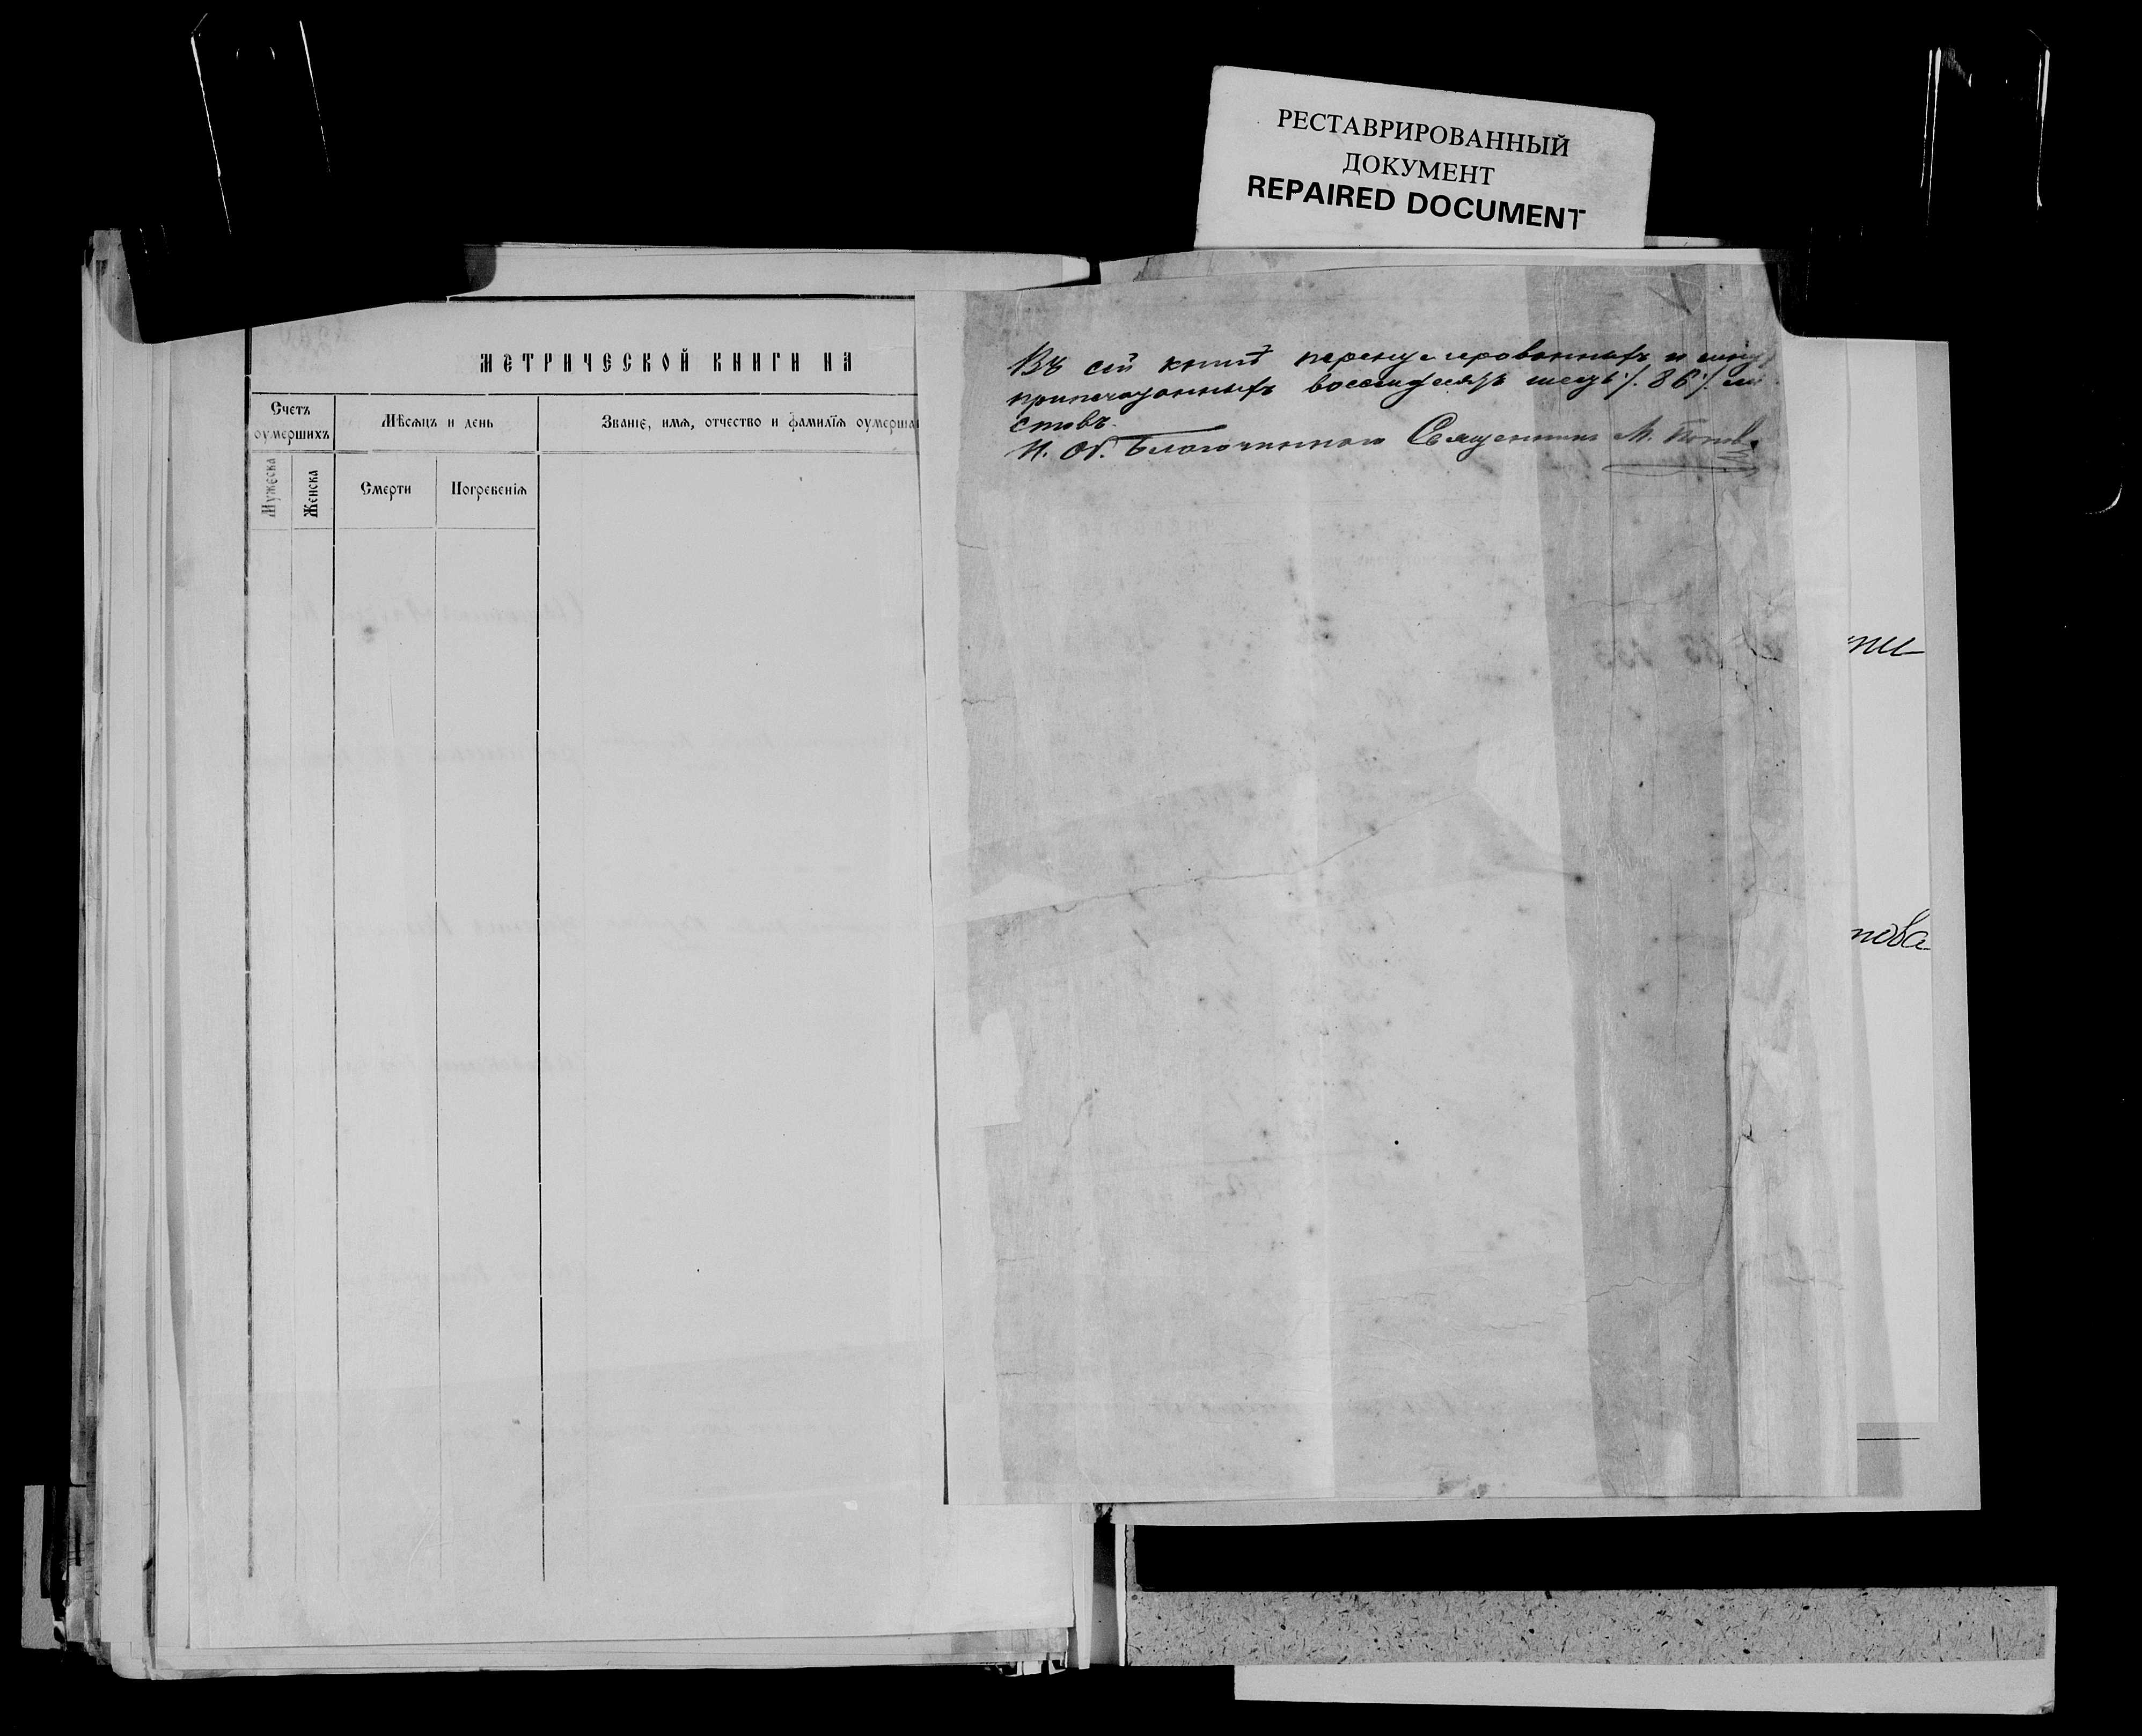 РЕСТАВРИРОВАННЫЙ
ДОКУМЕНТ
REPAIRED DOCUMENT
МЕТРИЧЕСКОЙ КНИГИ НА
Счетъ оумершихъ
Мѣсѧцъ и день
Званіе, имѧ, отчество и фамилїѧ оумерша
Мужеска
Женска
Смерти
Погребенїѧ
Въ сей книгѣ перенумерованныхъ и
припечатанныхъ восемьдесятъ шесть /. 86 /. ли
стовъ.
И. Об. Благочиннаго Священникъ М. Поповъ
пова